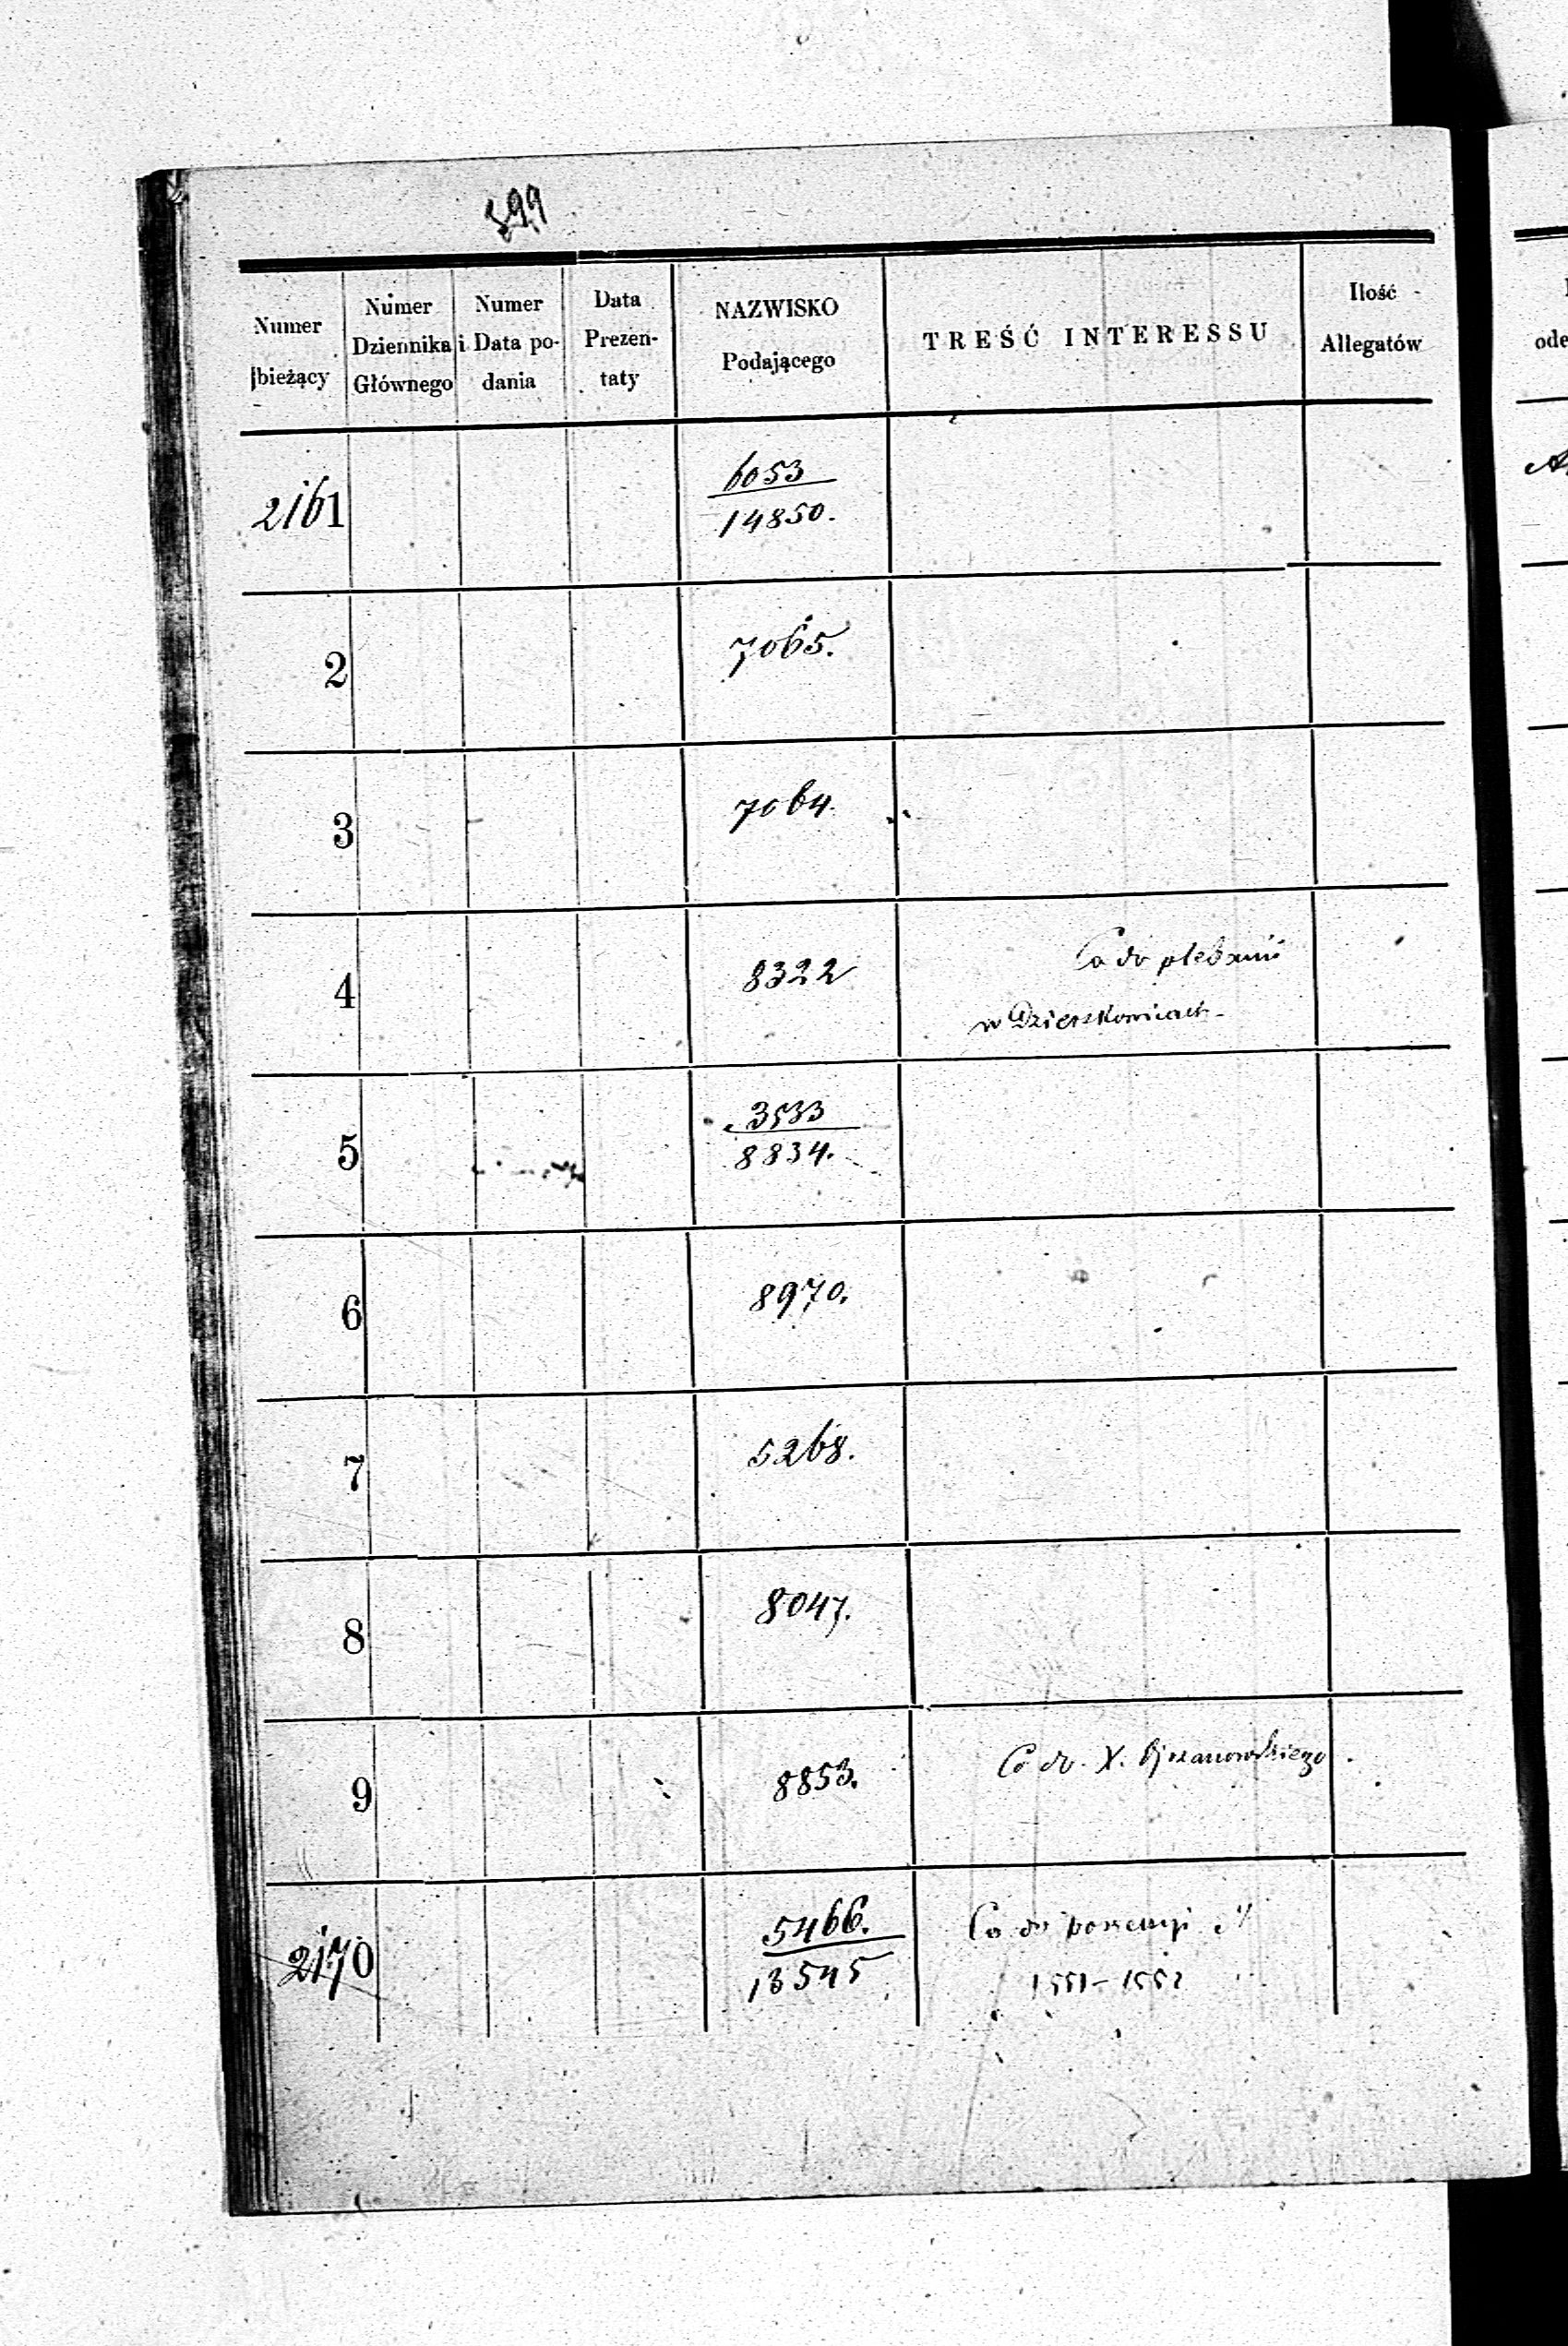 399
Numer
bieżący
Numer
Dziennika
Głównego
Numer
i Data po-
dania
Data
Prezen-
taty
NAZWISKO
Podającego
TREŚĆ INTERESSU
Ilość
Allegatów
2161
6053
14850.
2
7065.
3
7064.
4
8322
Co do plebanii
w Dzierzkowicach
5
3533
8834.
6
8970.
7
5268.
8
8047.
9
8853.
Co do X.
2170
5466.
13545
Co do
1551-1552